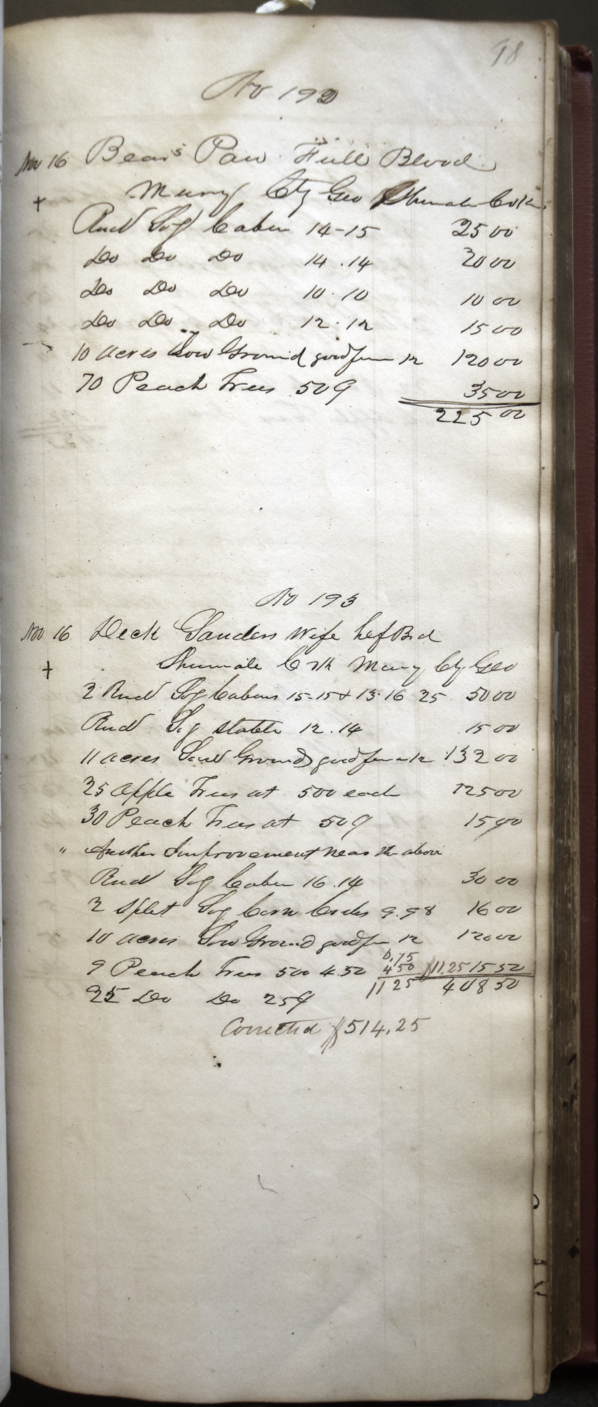 98
No 192
Nov 16 Bear's Paw Full Blood
+ Murry Cty Geo Shumate Crk
Rund Log Cabin 14-15 25 00
Do Do Do 14.14 20 00
Do Do Do 10.10 10 00
Do Do Do 12.12 15 00
10 acres Low Ground good fence 12 120 00
70 Peach Trees 50¢ 35 00
225 00
No 193
Nov 16 Deck Sanders Wife hef Brd
+ Shumate Crk Murry Cty Geo
2 Rund Log Cabins 15-15 & 13-16 25 50 00
Rund Log stable 12.14 15 00
11 acres Low Ground good fence 12 132 00
25 Apple Trees at 500 each 125 00
30 Peach Trees at 50¢ 15 00
" Another Improvement near the above
Rund Log Cabin 16.14 30 00
2 Split Log Corn Cribs 9.98 16 00
10 acres Low Ground good fn 12 120 00
9 Peach Trees 50¢ 4.50 6,75 4 50 11,25 15 50
25 Do Do 25¢ 11 25 408 50
Corrected $514,25